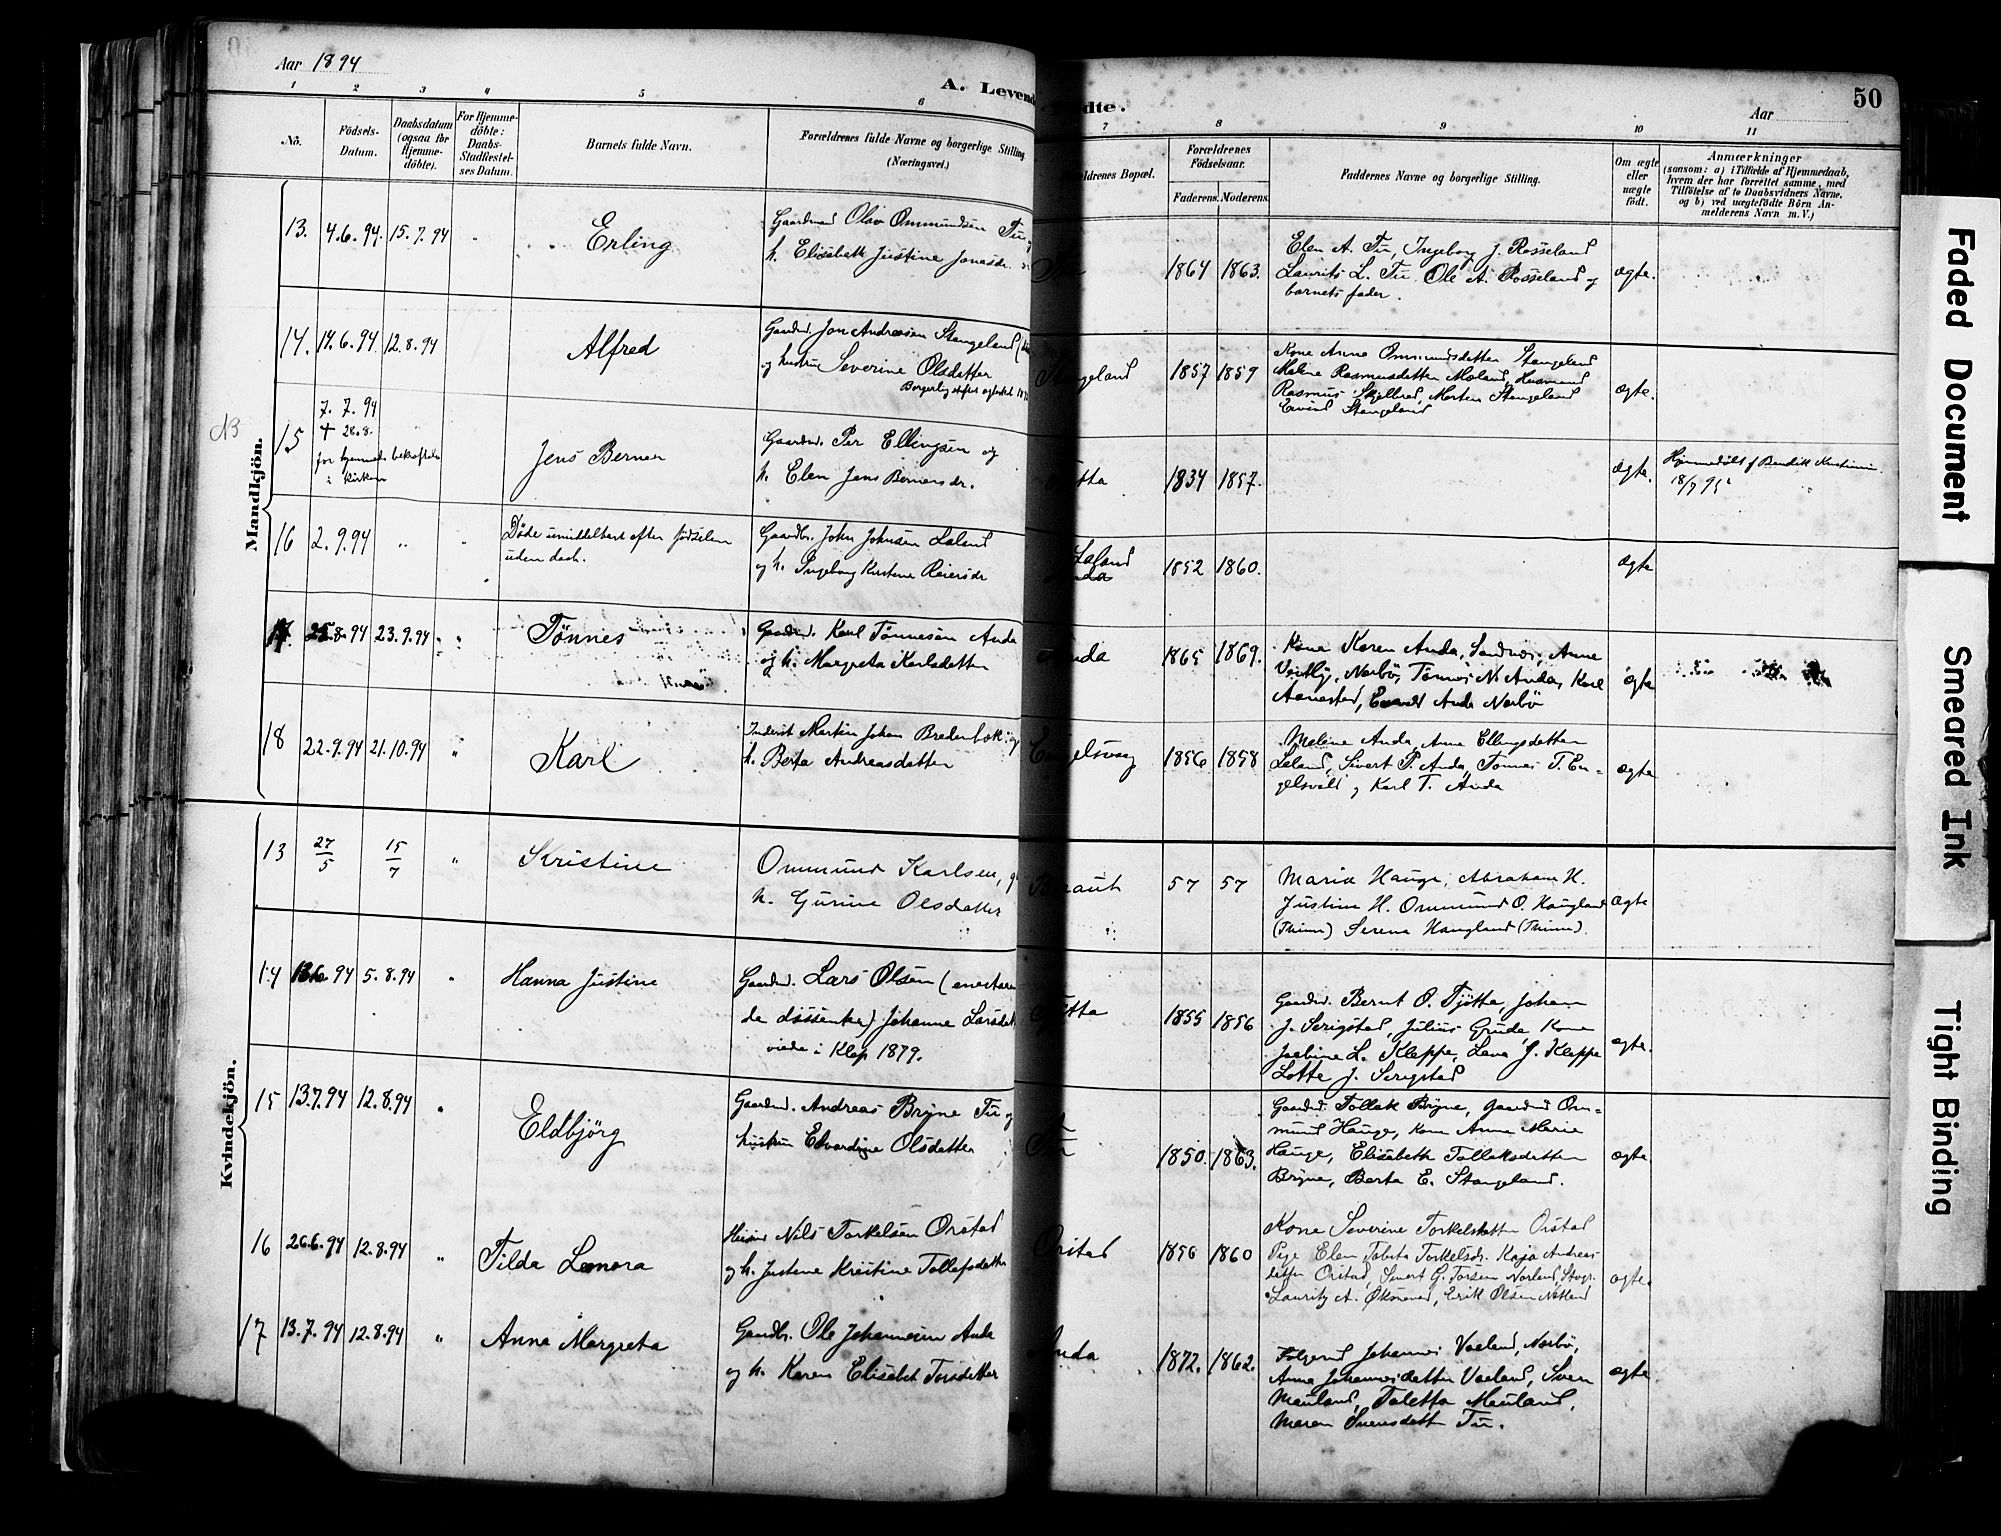 Aar 1894
A. Levend
ødte.
Aar
50
1 2 3 4 5 6 7 8 9 10 11
No.
Födsels-
Datum.
Daabsdatum
(ogsaa for
Hjemme-
döbte).
For Hjemme-
döbte:
Daabs-
Stadfæstel-
ses Datum.
Barnets fulde Navn.
Forældrenes fulde Navne og borgerlige Stilling
(Næringsvei.)
ldrenes Bopæl.
Forældrenes
Födselsaar.
Faderens. Moderens.
Faddernes Navne og borgerlige Stilling.
Om ægte
eller
uægte
födt.
Anmærkninger
(saasom: a) i Tilfælde af Hjemmedaab,
hvem der har forrettet samme, med
Tilföielse af to Daabsvidners Navne,
og b) ved uægtefödte Börn An-
melderens Navn m. V.)
Mandkjön.
13. 4.6.94. 15.7.94 " Erling
Gaardmd Olav Ommundsen Tu
h. Elisabeth Justine Jonasdr.
1864 1863.
Elen A. Tu, Ingeborg J. Rosseland
Laurits L. Tu Ole A. Rosseland og
barnets fader.
ægte.
14. 14.6.94 12.8.94 Alfred
Gaardmd. Jon Andreasen Stangeland
og hustru Severine Olsdatter
Stangeland 1857 1859
Kone Anne Ommundsdatter Stangeland
Malene Rasmusdatter Moland, Husmand
Rasmus Skjelbred, Morten Stangeland
Eivind Stangeland
ægte.
NB
15 7.7.94
+ 28.8.
i kirken
Jens Berner
Gaardmd. Per Ellingsen og
h. Elen Jens Bernersdr.
1834 1857.
ægte.
Hjemmedøbt f Bendik
16 2.9.94 " "
Døde umiddelbart efter fødselen
uden daab.
Gaardbr. John Johnsen Laland
og h. Ingeborg Kirstine Reiersdr
Laland
Anda
1852 1860.
ægte
17. 25.8.94 23.9.94 " " Tönnes
Gaardmd. Karl Tönnesen Anda
og h. Margreta Karlsdatter
Anda 1865 1869.
Kone Karen Anda, Sandnes, Anne
Nærbø, Tønnes N. Anda, Karl
Aanestad, Anda Nærbø
ægte
18 22.9.94 21.10.94 " Karl
Inderst Martin Johan Bredenbek og
h. Berta Andreasdatter
1856 1858
Meline Anda, Anne Ellingsdatter
Laland, Sivert P. Anda, Tønnes T. En-
gelsvold og Karl T. Anda
ægte
Kvindekjön.
13 27/5 15/7 " Kristine
Ommund Karlsen, og
h. Gurine Olsdatter
Braut 57 57
Maria Hauge, Abraham H.
Justine H. Ommund O. Haugland
(Thime) Serena Haugland (Thime).
ægte
14 13.6.94 5.8.94 " Hanna Justine
Gaardmd. Lars Olsen (
de dissenter) Johanne Larsdat
viede i Klep 1879.
1855 1856
Gaardmd. Bernt O. Tjötta, Johan
J. Serigstad, Julius Grude, Kone
Jaebine L. Kleppe, Lena J. Kleppe
Lotte J. Serigstad
ægte.
15 13.7.94 12.8.94 " Eldbjörg
Gaardmd. Andreas Bryne Tu og
hustru Edvardine Olsdatter
Tu 1850. 1863.
Gaardmd Tollak Bryne, Gaardmd Om-
mund Hauge, Kone Anne Marie
Hauge, Elisabeth Tollaksdatter
Bryne, Berta E. Stangeland.
ægte
16 26.6.94 12.8.94 " Tilda Lenora
Husmd Nils Torkelsen Orstad
og h. Justine Kristine Tollefsdatter
Orstad 1856 1860
Kone Severine Torkelsdatter Orstad
Pige Elen Tabita Torkelsdr. Kaja Andreas-
datter Orstad, Sivert G. Torsen Norland,
Laurity A. Øksnevad, Erik Olsen Netland
ægte.
17 13.7.94 12.8.94 " Anna Margreta
Gaardbr. Ole Johannesen Anda
og h. Karen Elisabet Torsdatter
Anda 1872. 1862.
Folgemd Johannes Vaeland, Nærbø,
Anna Johannesdatter Vaeland, Sven
Meuland, Taletta Meuland,
Maren Svensdatter Tu.
ægte.
Faded Document
Smeared Ink
Tight Binding